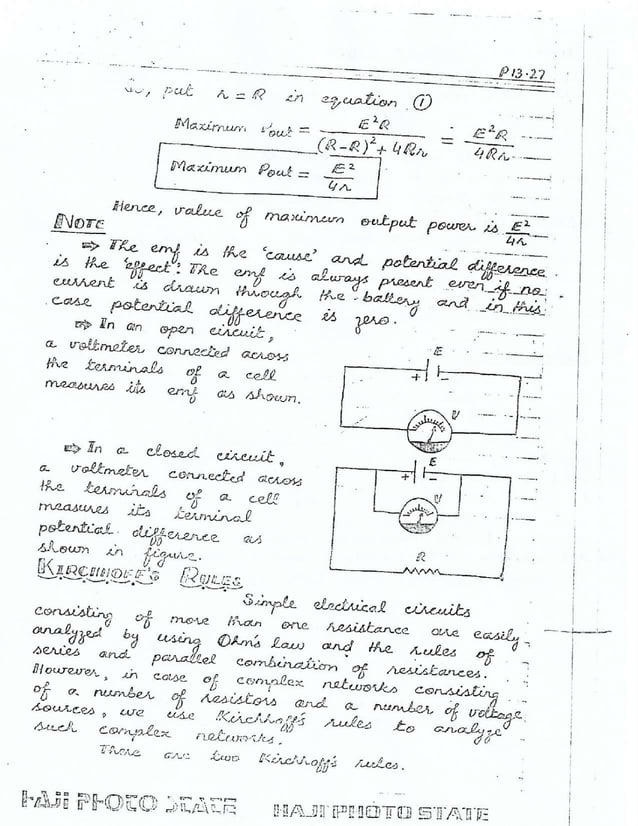 P13-27
So, put r = R in equation ①
Maximum Pout = E²R / (R-R)² + 4Rr = E²R / 4Rr
Maximum Pout = E² / 4r
Hence, value of maximum output power is E² / 4r
NOTE
⇒ The emf is the 'cause' and potential difference
is the 'effect'. The emf is always present even if no
current is drawn through the battery and in this
case potential difference is zero.
⇒ In an open circuit,
a voltmeter connected across
the terminals of a cell
measures its emf as shown.
E
+ -
V
⇒ In a closed circuit,
a voltmeter connected across
the terminals of a cell
measures its terminal
potential difference as
shown in figure.
E
+ -
V
R
KIRCHHOFF'S RULES
Simple electrical circuits
consisting of more than one resistance are easily
analyzed by using Ohm's law and the rules of
series and parallel combination of resistances.
However, in case of complex networks consisting
of a number of resistors and a number of voltage
sources, we use Kirchhoff's rules to analyze
such complex networks.
There are two Kirchhoff's rules.
HAJI PHOTO STATE HAJI PHOTO STATE